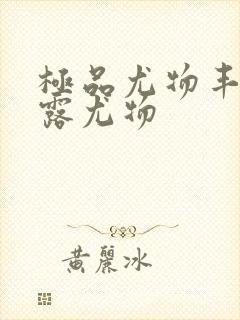 極品尤物丰
露尤物
黄麗冰